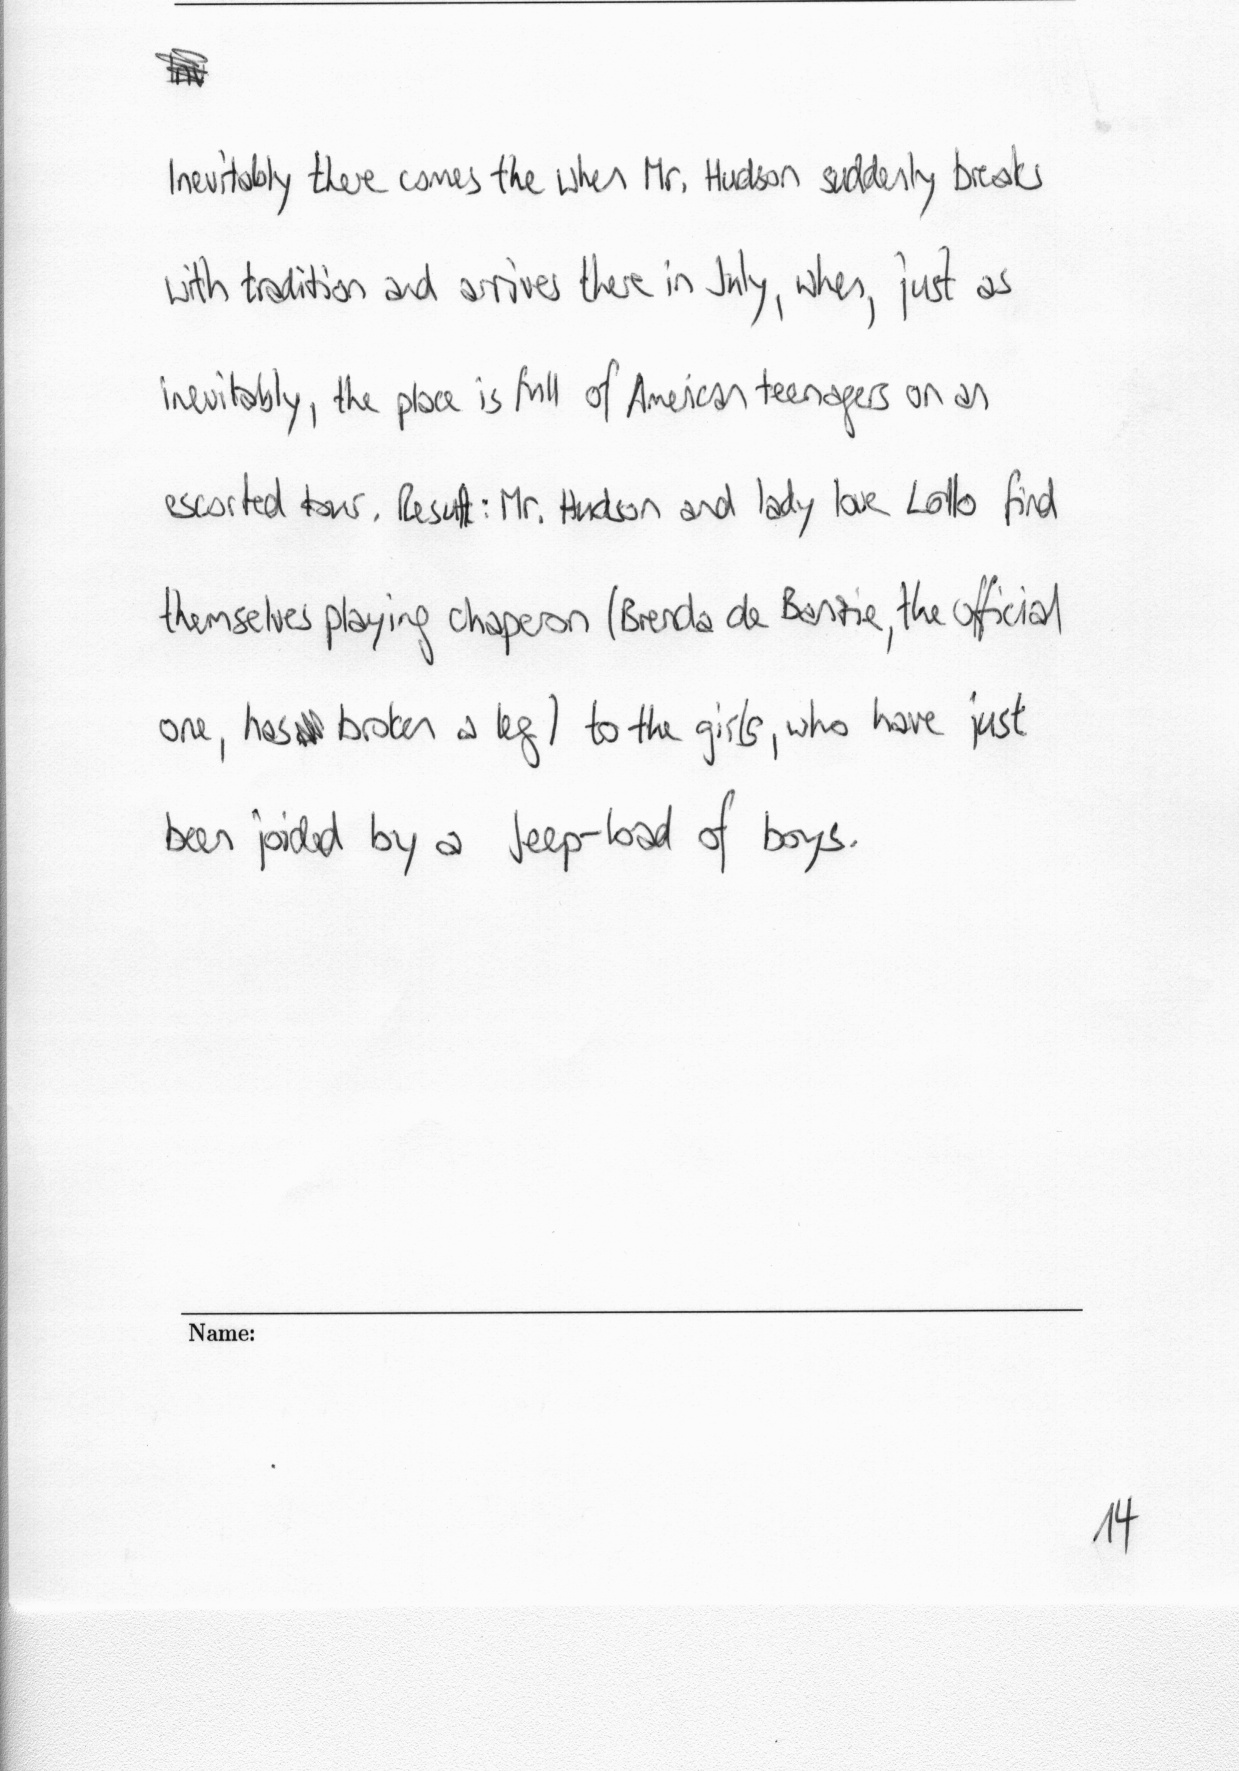 Inevitably there comes the when Mr. Hudson suddenly breaks
with tradition and arrives there in July, when, just as
inevitably, the place is full of American teenagers on an
escorted tour. Result: Mr. Hudson and lady love Lollo find
themselves playing chaperon (Brenda de Banzie, the official
one, has broken a leg) to the girls, who have just
been joided by a Jeep-load of boys.
Name:
14